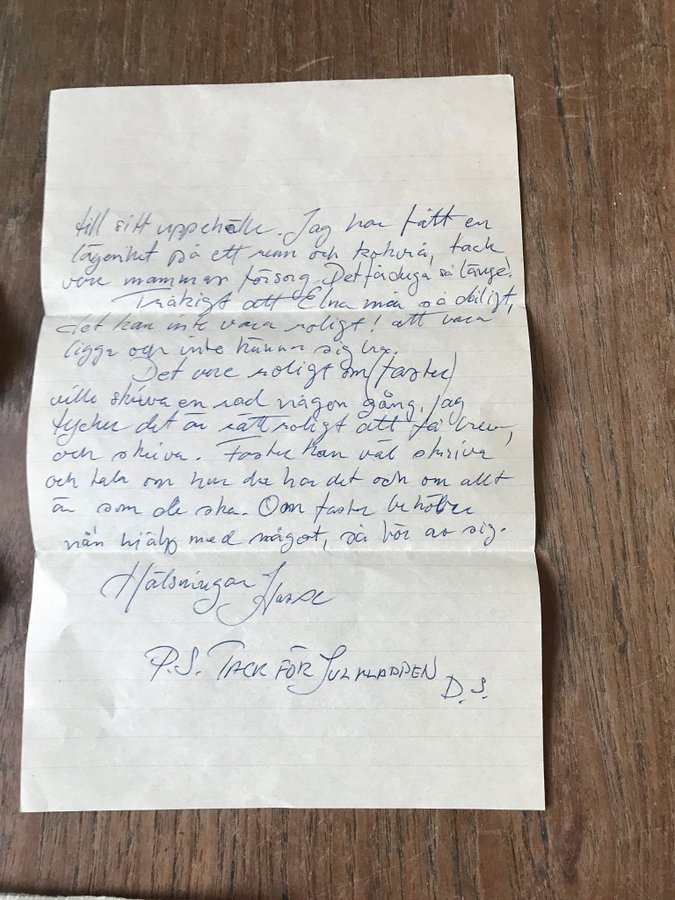 till sitt uppehälle. Jag har fått en
lägenhet på ett rum och kokvrå, tack
vare mammas försorg. Det får duga så länge.
Tråkigt att Elna mår så dåligt,
det kan inte vara roligt! att vara
ligga och inte känna sig bra.
Det vore roligt om (faster)
ville skriva en rad någon gång, jag
tycker det är rätt roligt att få brev,
och skriva. Faster kan väl skriva
och tala om hur du har det och om allt
är som de ska. Om faster behöver
nån hjälp med något, så hör av sig.
Hälsningar Hasse
P.S. TACK FÖR JULKLAPPEN
D.S.